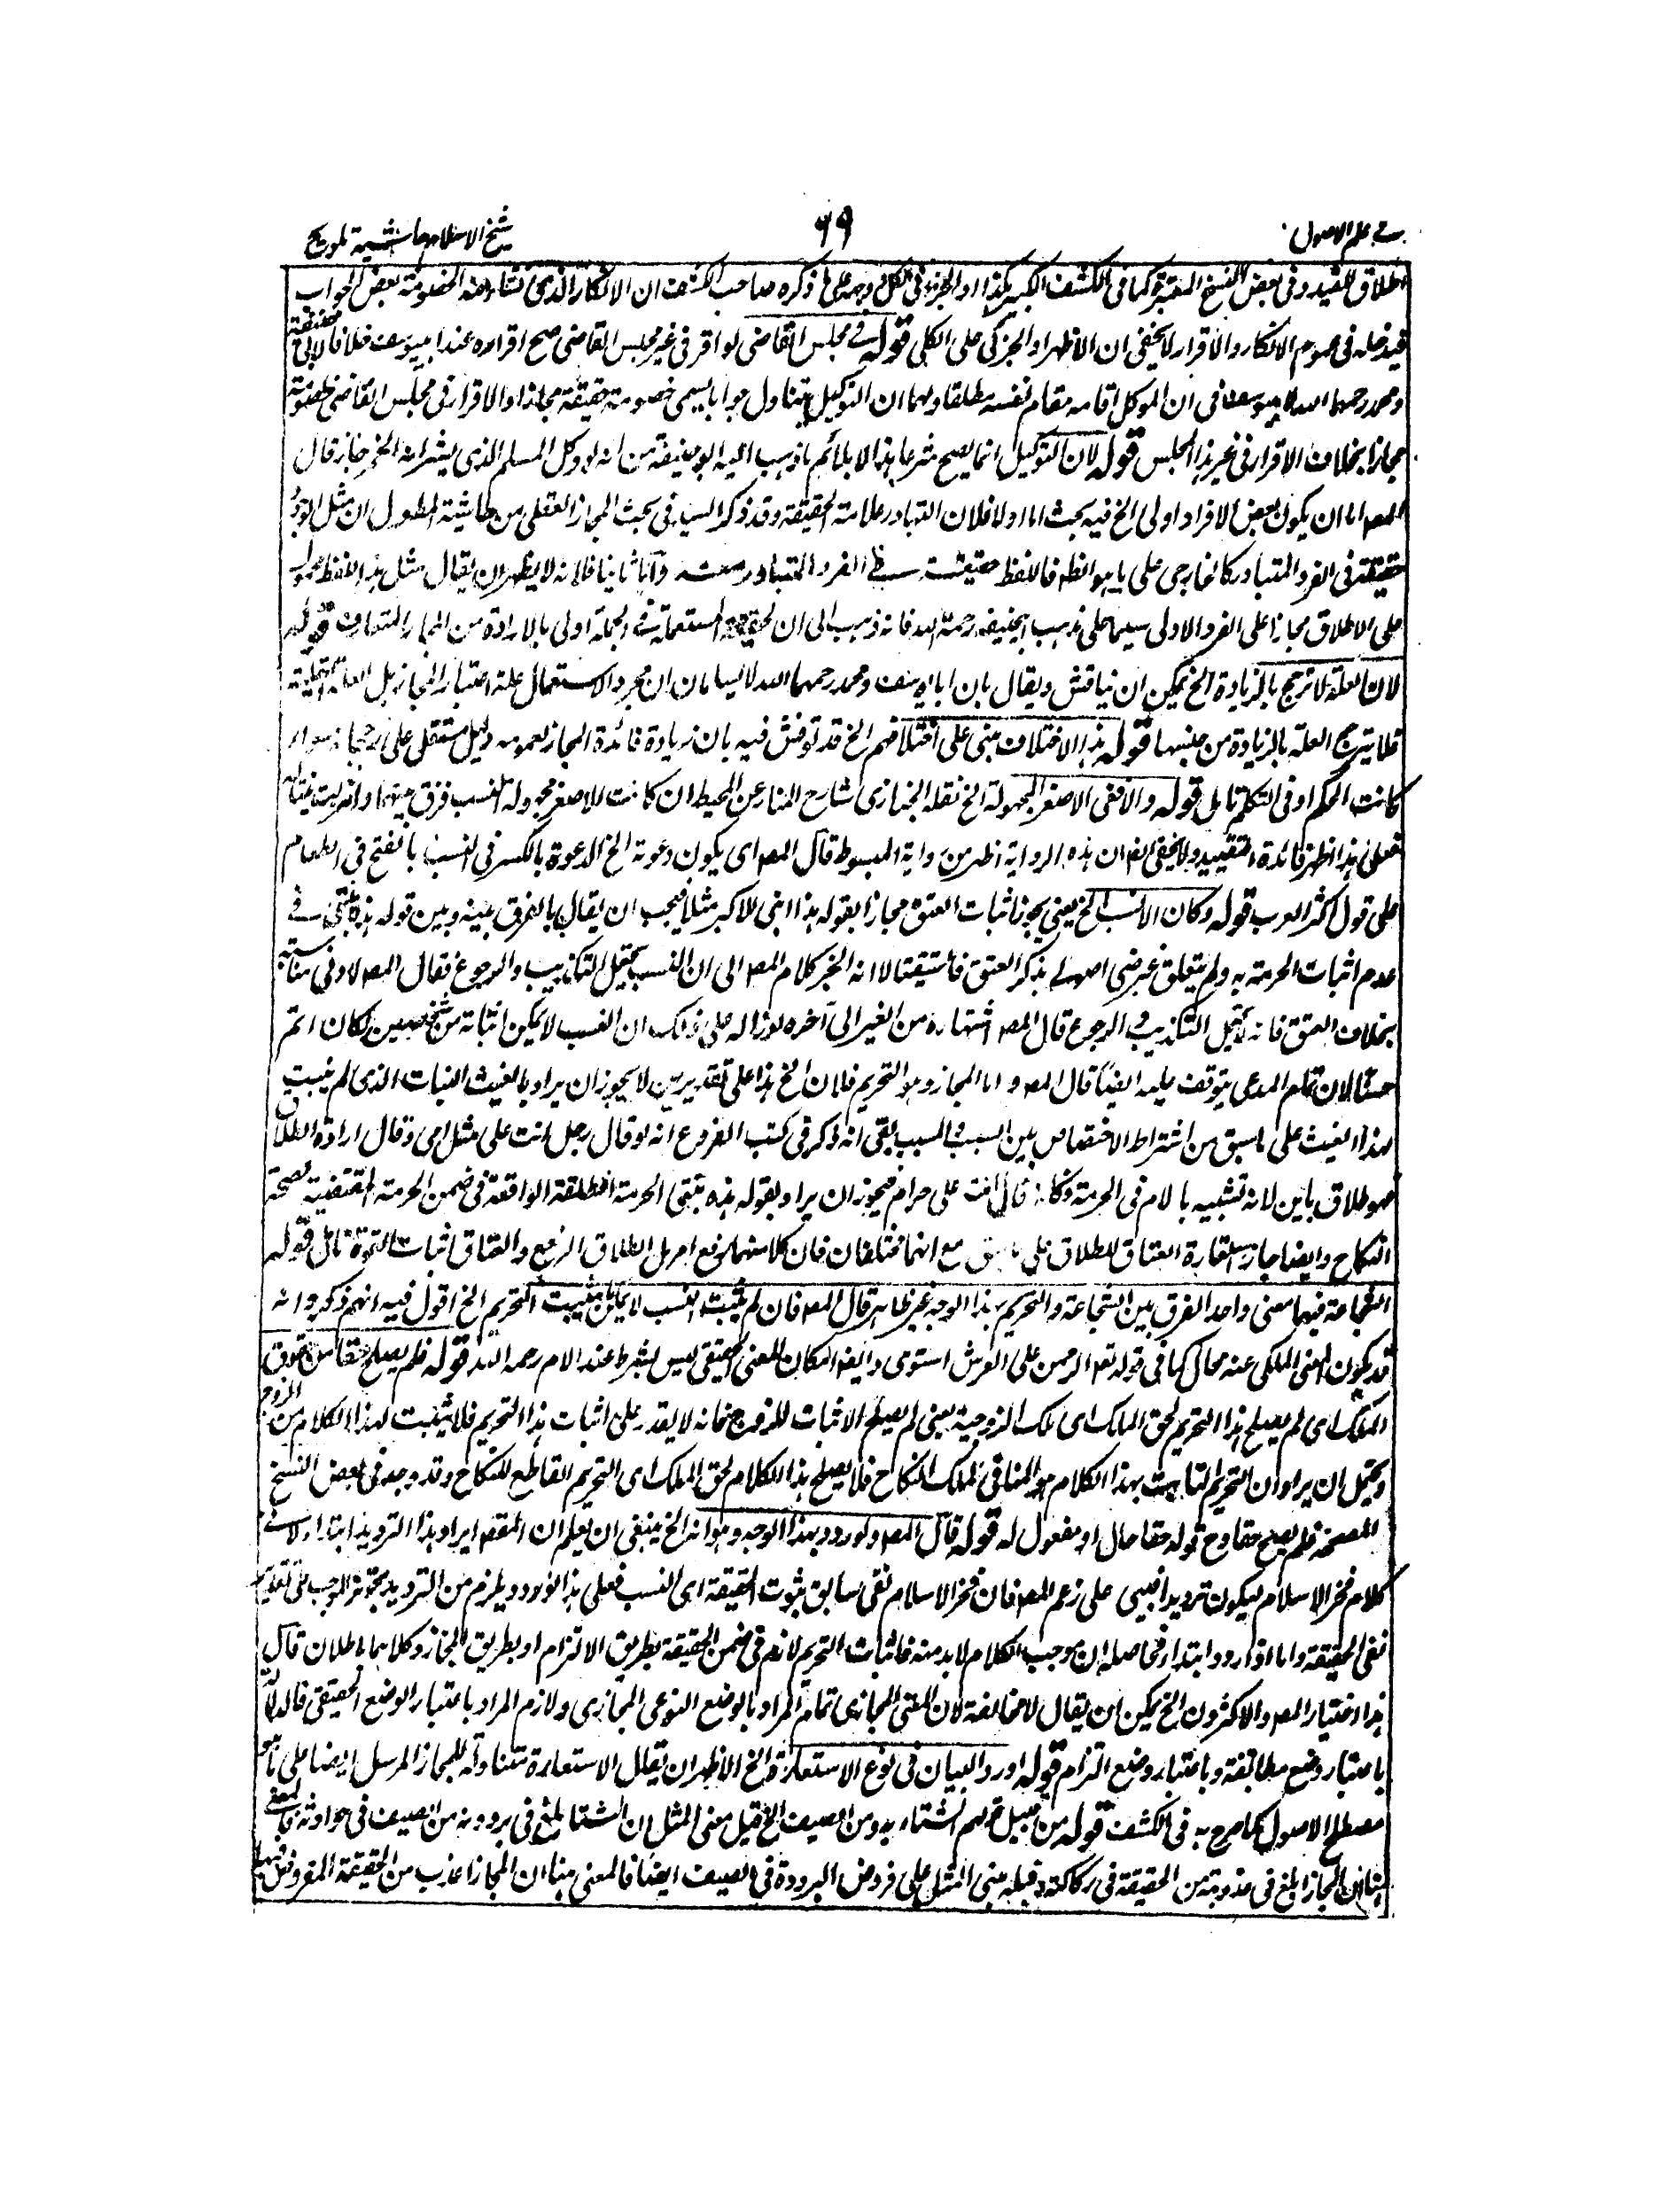 في علم الاصول ٦٩ شيخ الاسلام حاشية تلويح
اطلاق المقيد وفي بعض النسخ المعتبرة كما في الكشف الكبير هكذا او الجزء في الكل وجهه على ما ذكره صاحب الكشف ان الانكار الذي تنشا منه الخصومة بعض الجواب
فيدخله في عموم الانكار والاقرار لا يخفى ان الاظهر او الجزئي على الكلي قوله في مجلس القاضي لو اقر في غير مجلس القاضي صح اقراره عند ابي يوسف خلافا لابي حنيفة
ومحمد رحمهما الله لابي يوسف في ان الموكل اقامه مقام نفسه مطلقا ولهما ان التوكيل يتناول جوابا يسمى خصومة حقيقة مجازا والاقرار في مجلس القاضي خصومة
مجازا بخلاف الاقرار في غير هذا المجلس قوله لان التوكيل انما يصح شرعا هذا لا يلائم ما ذهب اليه ابو حنيفة من انه لو وكل المسلم الذي بشراء الخمر جاز قال
المص اما ان يكون بعض الافراد اولى الخ فيه بحث اما اولا فلان التبادر علامة الحقيقة وقد ذكر السيد في بحث المجاز العقلي من حاشية المطول ان مثل الوجود
حقيقة في الفرد المتبادر كالخارجي على ما هو الظ فاللفظ حقيقت في الفرد المتبادر منه واما ثانيا فلانه لا يظهر ان يقال مثل هذا اللفظ محمول
على الاطلاق مجازا على الفرد الاولى سيما على مذهب ابي حنيفه رحمة الله فانه ذهب الى ان الحقيقة المستعملة في الجملة اولى بالارادة من المجاز المتعارف قوله
لان العلة لا ترجح بالزيادة الخ يمكن ان يناقش ويقال بان ابا يوسف ومحمد رحمهما الله لا يسلمان ان مجرد الاستعمال علة اعتبار المجاز بل العلة
فلا يترجح العلة بالزيادة من جنسها قوله هذا الاختلاف مبني على اختلافهم الخ قد نوقش فيه بان زيادة فائدة المجاز لعمومه دليل مستقل على رجحانه سواء
كانت الحكم او في التكلم تامل قوله والا ففي الاصغر المجهولة الخ نقله الخبازي شارح المنار عن المحيط ان كانت للاصغر مجهولة النسب فرق بينهما
فعلى هذا اظهر فائدة التقييد ولا يخفى ايضا ان هذه الرواية اظهر من رواية المبسوط قال المص اي يكون دعوته الخ الدعوة بالكسر في النسب بالفتح في الطعام
على قول اكثر العرب قوله وكان الانسب الخ يعني يجوز اثبات العتق مجازا بقوله هذا ابني للاكبر مثلا فيجب ان يقال بالفرق بينه وبين قوله هذه بنتي في
عدم اثبات الحرمة به ولم يتعلق غرضي اصلا بذكر العتق استيقنا لا انه الخبر كلام المص الى ان النسب يحتمل التكذيب والرجوع فقال المص لا وفي مناسبة
بخلاف العتق فانه لا يحتمل التكذيب والرجوع قال المص اشتهاره من الغير الى آخره بوزاله على ذلك ان النسب لا يمكن اثباته من شخصين لكان اتم
حسنا لان تمام المدعى يتوقف عليه ايضا قال المص واما المجاز وهو التحريم فلان الخ هذا على تقديرين لا يجوز ان يراد بالغيث النبات الذي لم ينبت
بهذا الغيث على ما سبق من اشتراط الاختصاص بين السبب والمسبب بقي انه ذكر في كتب الفروع انه لو قال رجل انت على مثل امي وقال ارادة الطلاق
هو طلاق باين لانه تشبيه بالام في الحرمة فكانه قال انت على حرام فيجوز ان يراد بقوله هذه بنتي الحرمة المطلقة الواقعة في ضمن الحرمة المقتضية لصحة
النكاح وايضا جاز استعارة العتاق للطلاق على ما سبق مع انهما مختلفان فان كلا منهما رفع امر بل الطلاق الرفع والعتاق اثبات القوة تامل قوله
الشجاعة فيهما معنى واحد الفرق بين الشجاعة والتحريم بهذا الوجه غير ظاهر قال المص فان لم يثبت النسب لا يمكن ان يثبت التحريم الخ اقول فيه انهم ذكروا انه
قد يكون المعنى المكنى عنه محالا كما في قوله تعالى الرحمن على العرش استوى وايضا امكان المعنى الحقيقي ليس بشرط عند الامام رحمه الله قوله فلم يصلح حقا من حقوق
الملك اي لم يصلح هذا التحريم لحق الملك اي ملك الزوجية يعني لم يصلح الاثبات للزوج فانه لا يقدر على اثبات هذا التحريم فلا يثبت لهذا الكلام من الزوج
ويحتمل ان يراد ان التحريم الثابت بهذا الكلام هو المنافي لملك النكاح فلا يصلح هذا الكلام لحق الملك اي التحريم القاطع للنكاح وقد وجد في بعض النسخ
المصححة فلم يصح حقا وح قوله حقا حال او مفعول له قوله قال المص ولو ردد بهذا الوجه وهو انه الخ ينبغي ان يعلم ان المقصد ايراد هذا الترديد ابتداء لا في
كلام فخر الاسلام ليكون ترديدا قبيح على زعم المص فان فخر الاسلام نفى سابق ثبوت الحقيقة اي النسب فعلى هذا لو ردد يلزم من الترديد
نفي الحقيقة واما اذا ردد ابتداء فحاصله ان موجب الكلام لابد منه فاثبات التحريم لازم في ضمن الحقيقة بطريق الالتزام او بطريق المجاز وكلاهما باطلان قال
هذا اختيار المص والاكثرون الخ يمكن ان يقال لا مخالفة لان المعنى المجازي تمام المراد بالوضع النوعي المجازي ولازم المراد باعتبار الوضع الحقيقي فالدلالة
باعتبار وضع مطابقة وباعتبار وضع التزام قوله اورد البيان في نوع الاستعارة الخ الاظهر ان تعلل الاستعارة متناولة للمجاز المرسل ايضا على ما هو
مصطلح الاصول كما صرح به في الكشف قوله من قبيل قولهم الشتاء ابرد من الصيف الخ قيل معنى المثل ان الشتا ابلغ في برودته من الصيف في حرارته فالمعنى
هنا ان المجاز ابلغ في عذوبته من الحقيقة في ركاكته وقيل مبنى المثل على فرض البرودة في الصيف ايضا فالمعنى هنا ان المجاز اعذب من الحقيقة المفروض